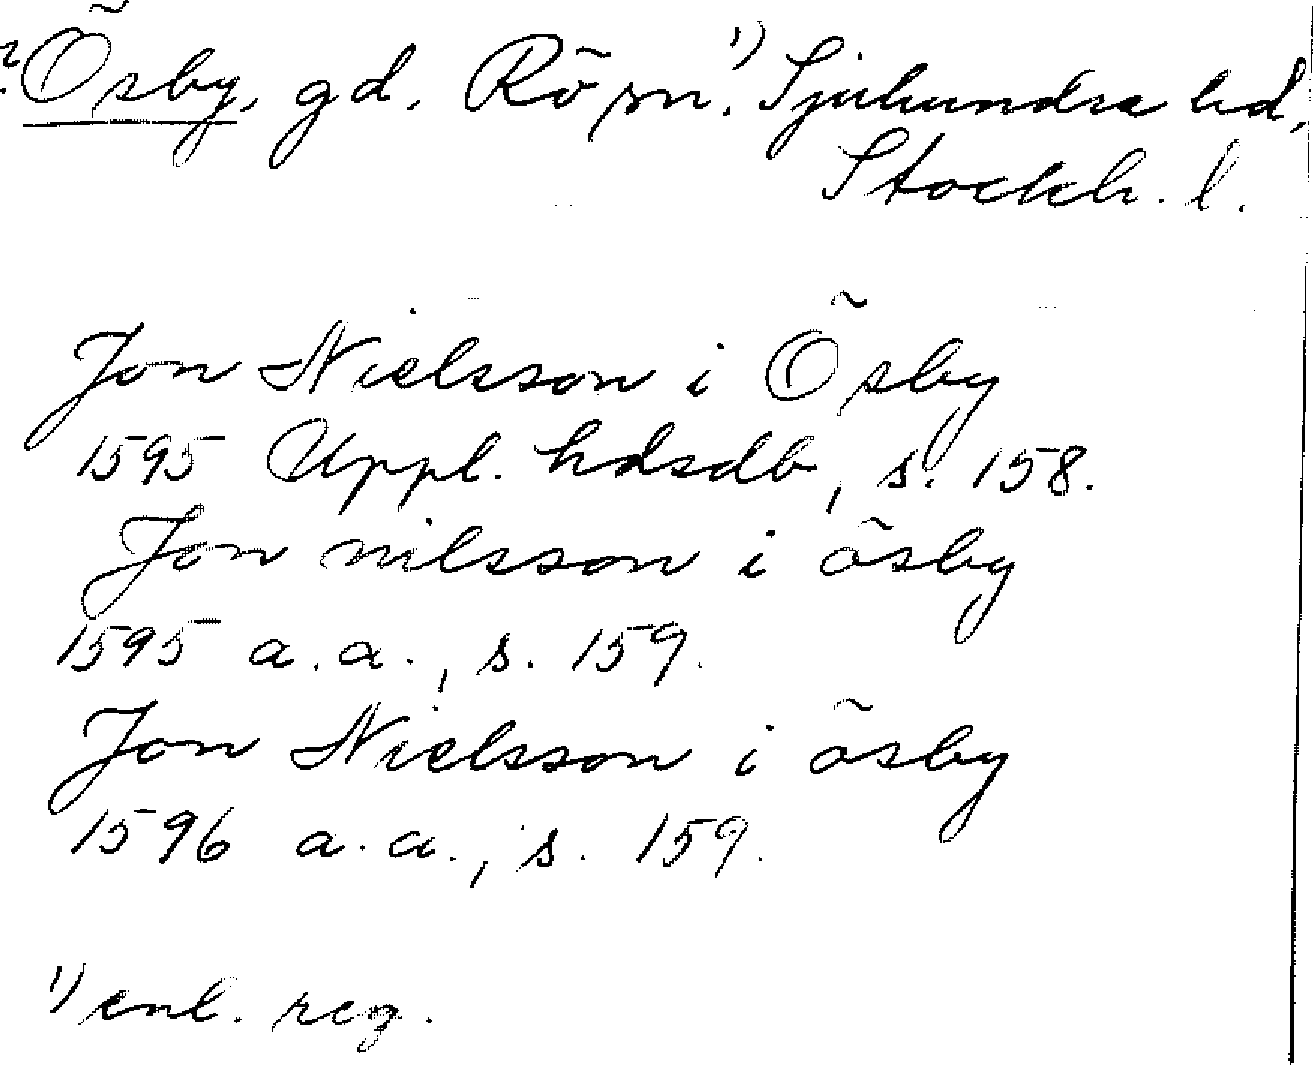 ? Õsby, gd. Rö sn.¹⁾ Sjuhundra hd,
Stockh. l.
Jon Nielsson i Õsby
1595 Uppl. hdsdb, s. 158.
Jon nilsson i õsby
1595 a.a., s. 159.
Jon Nielsson i õsby
1596 a.a., s. 159.
¹⁾ enl. reg.